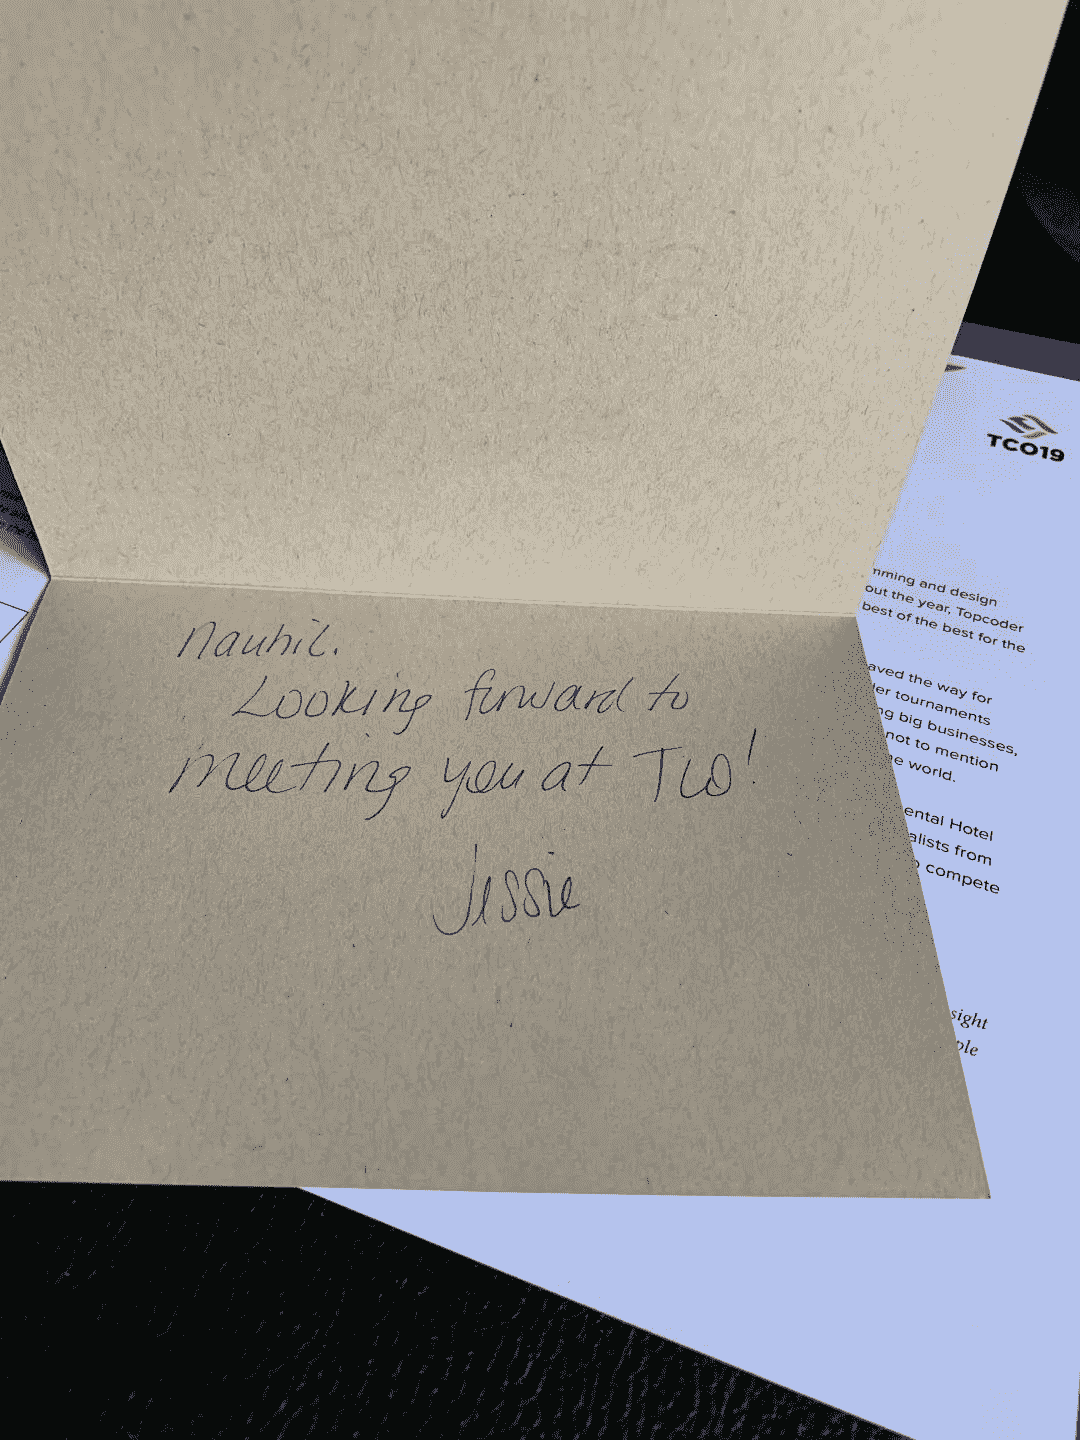 Nauhil.
Looking forward to
meeting you at TCO!
Jessie
TCO19
mming and design
out the year, Topcoder
best of the best for the
aved the way for
er tournaments
ng big businesses,
not to mention
e world.
ental Hotel
alists from
compete
sight
ple